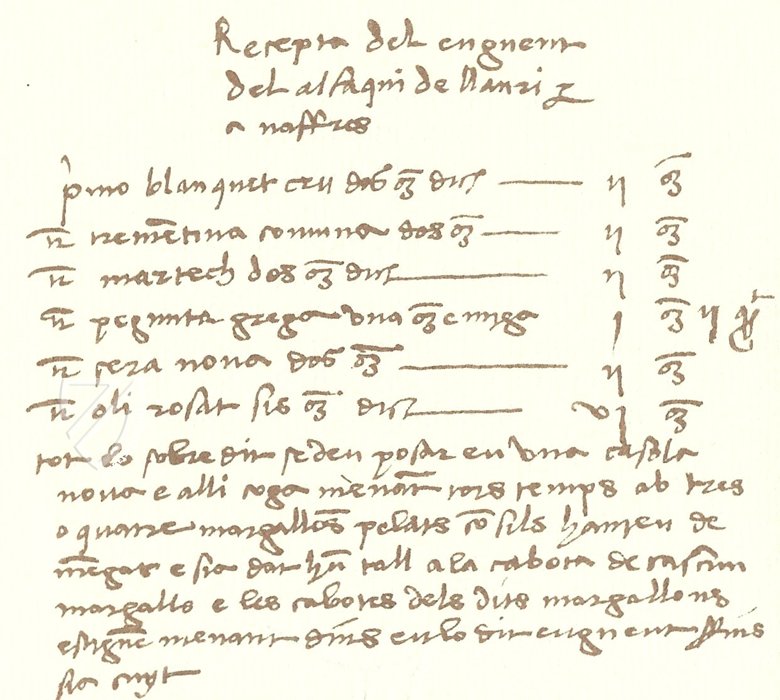 Recepta del enguent
del alfaqui de Llauri
a naffres
pmo blanquet cru dos oz ij oz
trementina comuna dos oz ij oz
martech dos oz ij oz
pegunta grega vna oz e miga j oz ij
cera noua dos oz ij oz
oli rosat sis oz vj oz
tot lo sobredit se deu posar en vna casola
noua e alli coga menāt tots temps ab tres
o quatre margallōs pelats cō sils hauieu de
mēgar e sia dat hū tall a la cabota de cascun
margallo e les cabotes dels dits margallons
estiguē menant dins en lo dit enguent fins
sia cuyt